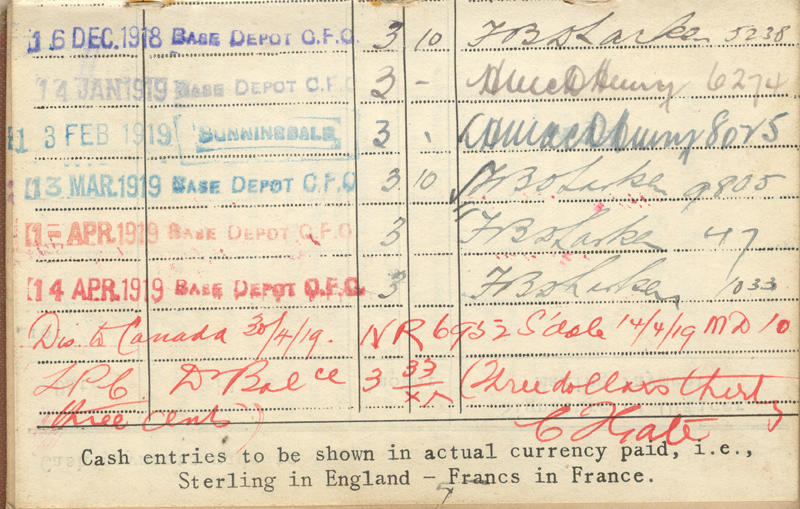 16 DEC. 1918 BASE DEPOT C.F.C. 3 10 5238
14 JAN 1919 BASE DEPOT C.F.C 3 - 6274
13 FEB 1919 SUNNINGDALE 3 8025
13 MAR. 1919 BASE DEPOT C.F.C 3 10 9805
1- APR. 1919 BASE DEPOT C.F.C 3 47
14 APR. 1919 BASE DEPOT C.F.C. 3 1033
Dis. to Canada 30/4/19. NR 6952 S'dale 14/4/19 MD 10
L.P.C. Dr Balce 3 33/xx (Three dollars thirty
three cents)
Cash entries to be shown in actual currency paid, i.e.,
Sterling in England - Francs in France.